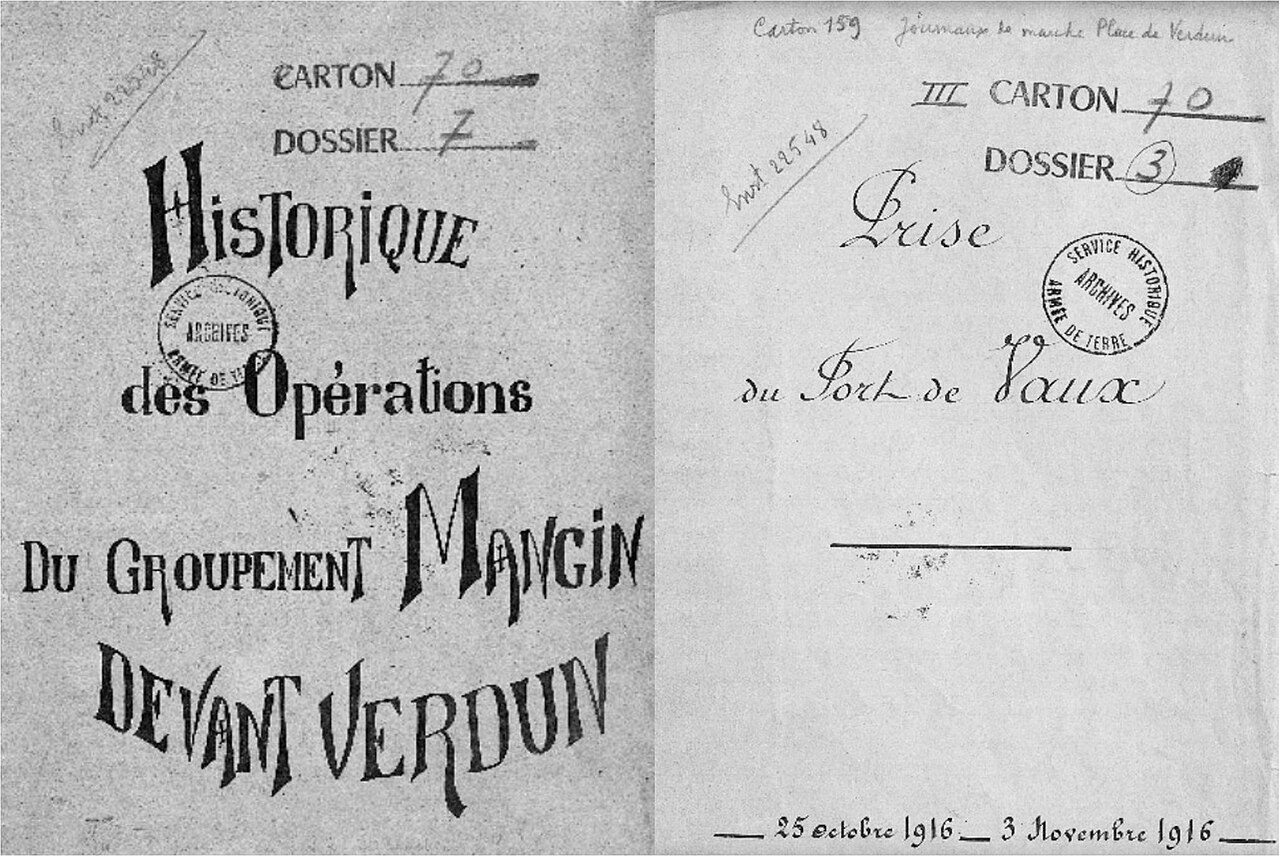 Inst 22548
CARTON 70
DOSSIER 7
HISTORIQUE
SERVICE HISTORIQUE
ARCHIVES
ARMÉE DE TERRE
des Opérations
DU GROUPEMENT MANGIN
DEVANT VERDUN
Carton 159 Journaux de marche Place de Verdun
III CARTON 70
DOSSIER 3
Inst 22548
Prise
SERVICE HISTORIQUE
ARCHIVES
ARMÉE DE TERRE
du Fort de Vaux
25 octobre 1916 — 3 Novembre 1916